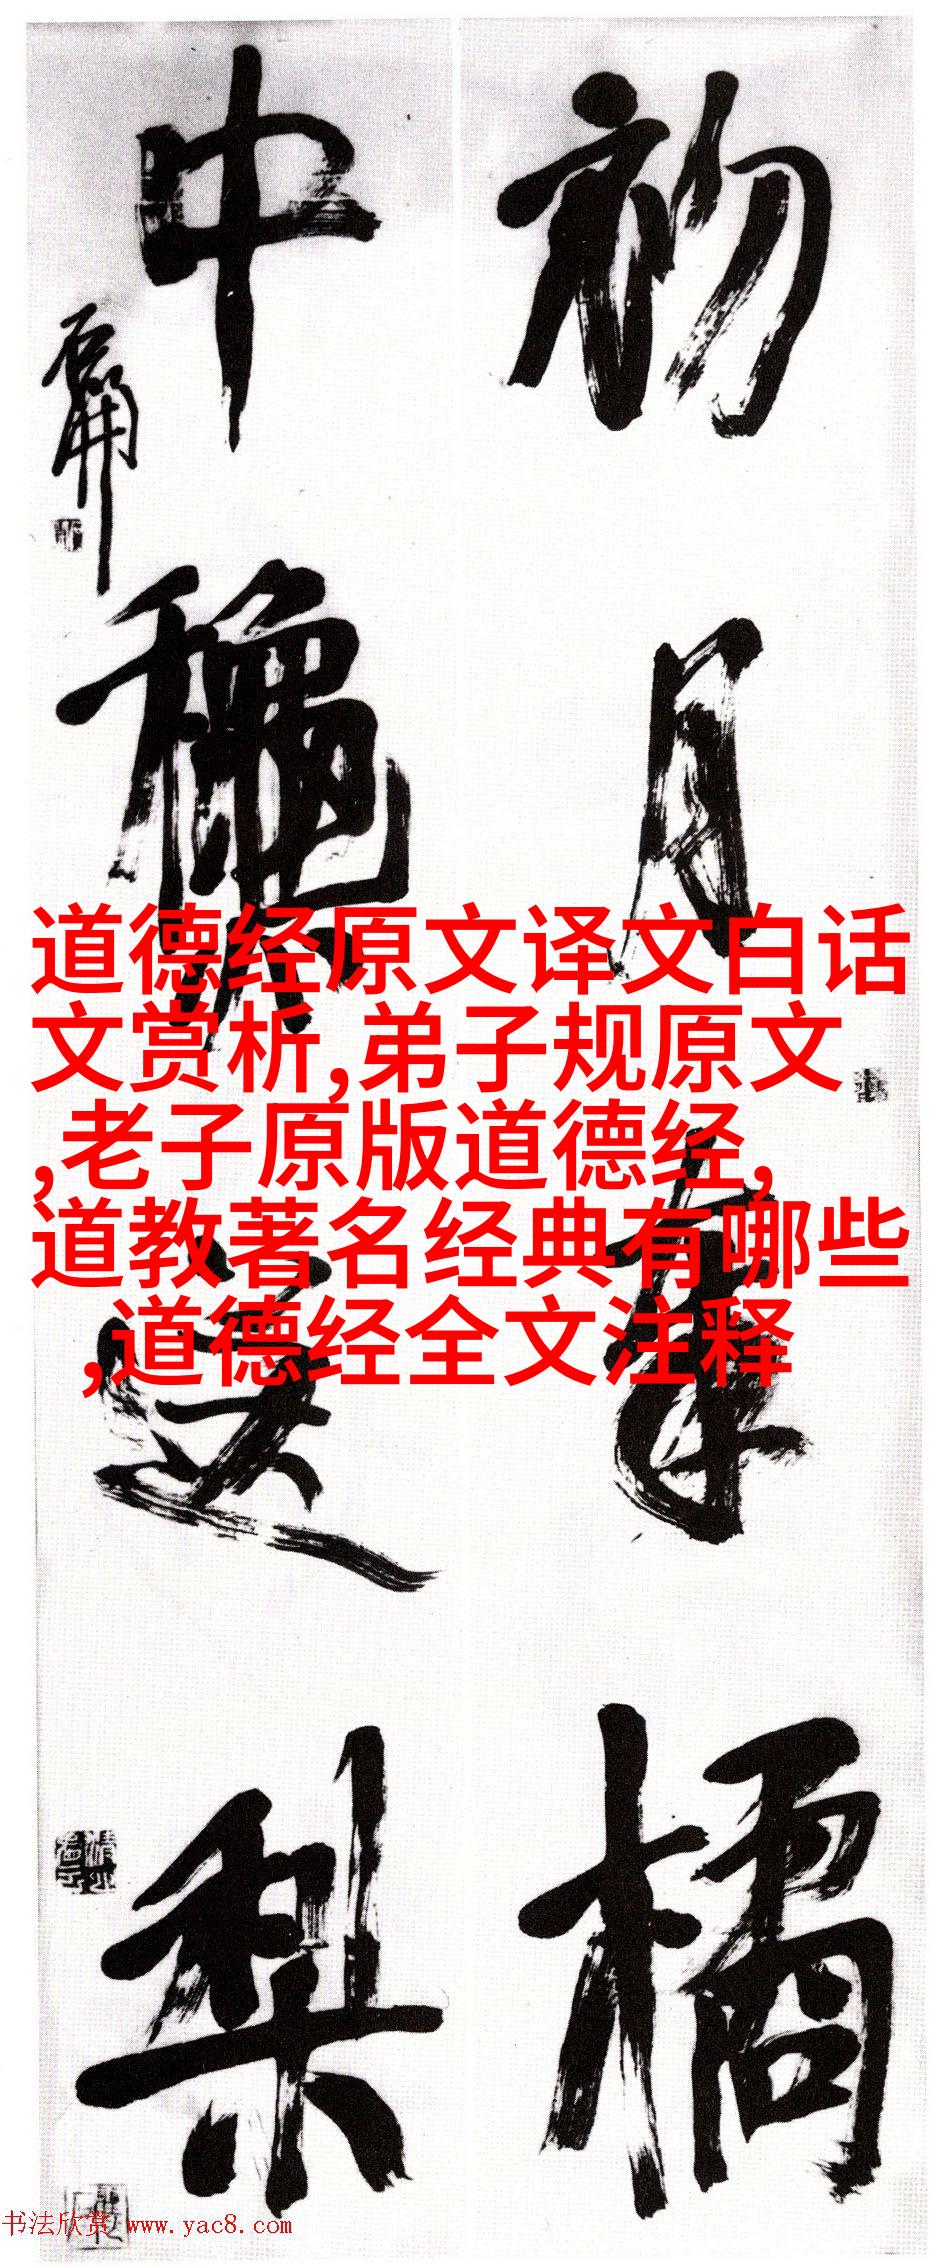 初月奉橘
中龝送梨
石開
道德经原文译文白话
文赏析,弟子规原文
,老子原版道德经,
道教著名经典有哪些
,道德经全文注释
书法欣赏 www.yac8.com